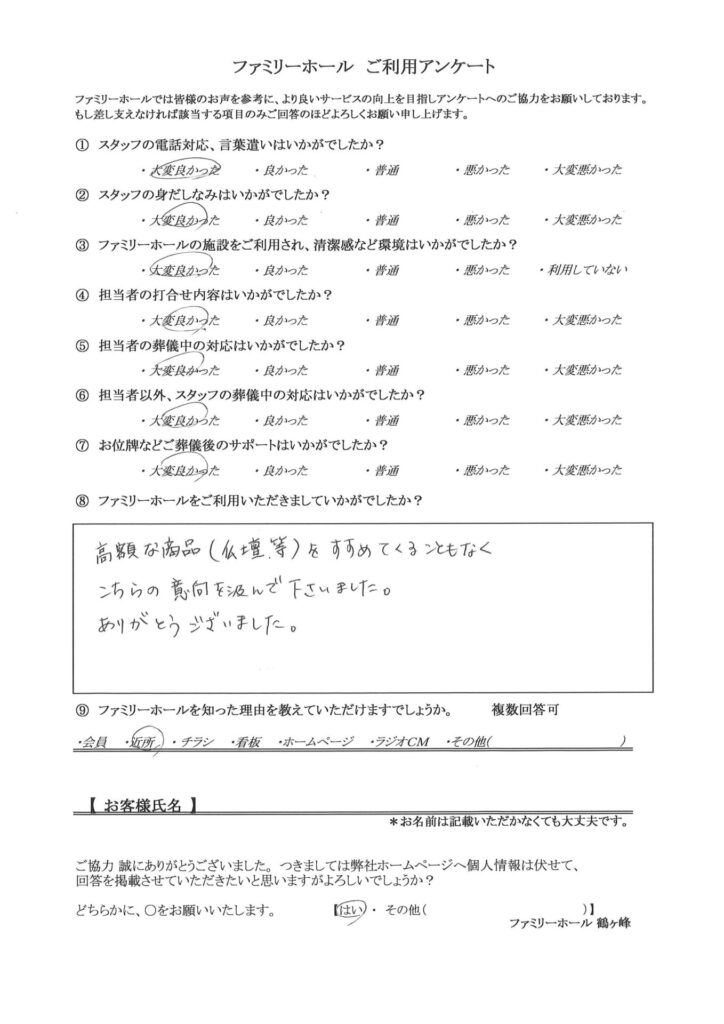 ファミリーホール ご利用アンケート
ファミリーホールでは皆様のお声を参考に、より良いサービスの向上を目指しアンケートへのご協力をお願いしております。
もし差し支えなければ該当する項目のみご回答のほどよろしくお願い申し上げます。
① スタッフの電話対応、言葉遣いはいかがでしたか？
・大変良かった ・良かった ・普通 ・悪かった ・大変悪かった
② スタッフの身だしなみはいかがでしたか？
・大変良かった ・良かった ・普通 ・悪かった ・大変悪かった
③ ファミリーホールの施設をご利用され、清潔感など環境はいかがでしたか？
・大変良かった ・良かった ・普通 ・悪かった ・利用していない
④ 担当者の打合せ内容はいかがでしたか？
・大変良かった ・良かった ・普通 ・悪かった ・大変悪かった
⑤ 担当者の葬儀中の対応はいかがでしたか？
・大変良かった ・良かった ・普通 ・悪かった ・大変悪かった
⑥ 担当者以外、スタッフの葬儀中の対応はいかがでしたか？
・大変良かった ・良かった ・普通 ・悪かった ・大変悪かった
⑦ お位牌などご葬儀後のサポートはいかがでしたか？
・大変良かった ・良かった ・普通 ・悪かった ・大変悪かった
⑧ ファミリーホールをご利用いただきましていかがでしたか？
高額な商品(仏壇等)をすすめてくることもなく
こちらの意向を汲んで下さいました。
ありがとうございました。
⑨ ファミリーホールを知った理由を教えていただけますでしょうか。 複数回答可
・会員 ・近所 ・チラシ ・看板 ・ホームページ ・ラジオCM ・その他( )
【 お客様氏名 】
＊お名前は記載いただかなくても大丈夫です。
ご協力 誠にありがとうございました。つきましては弊社ホームページへ個人情報は伏せて、
回答を掲載させていただきたいと思いますがよろしいでしょうか？
どちらかに、〇をお願いいたします。 【はい ・ その他( )】
ファミリーホール 鶴ヶ峰